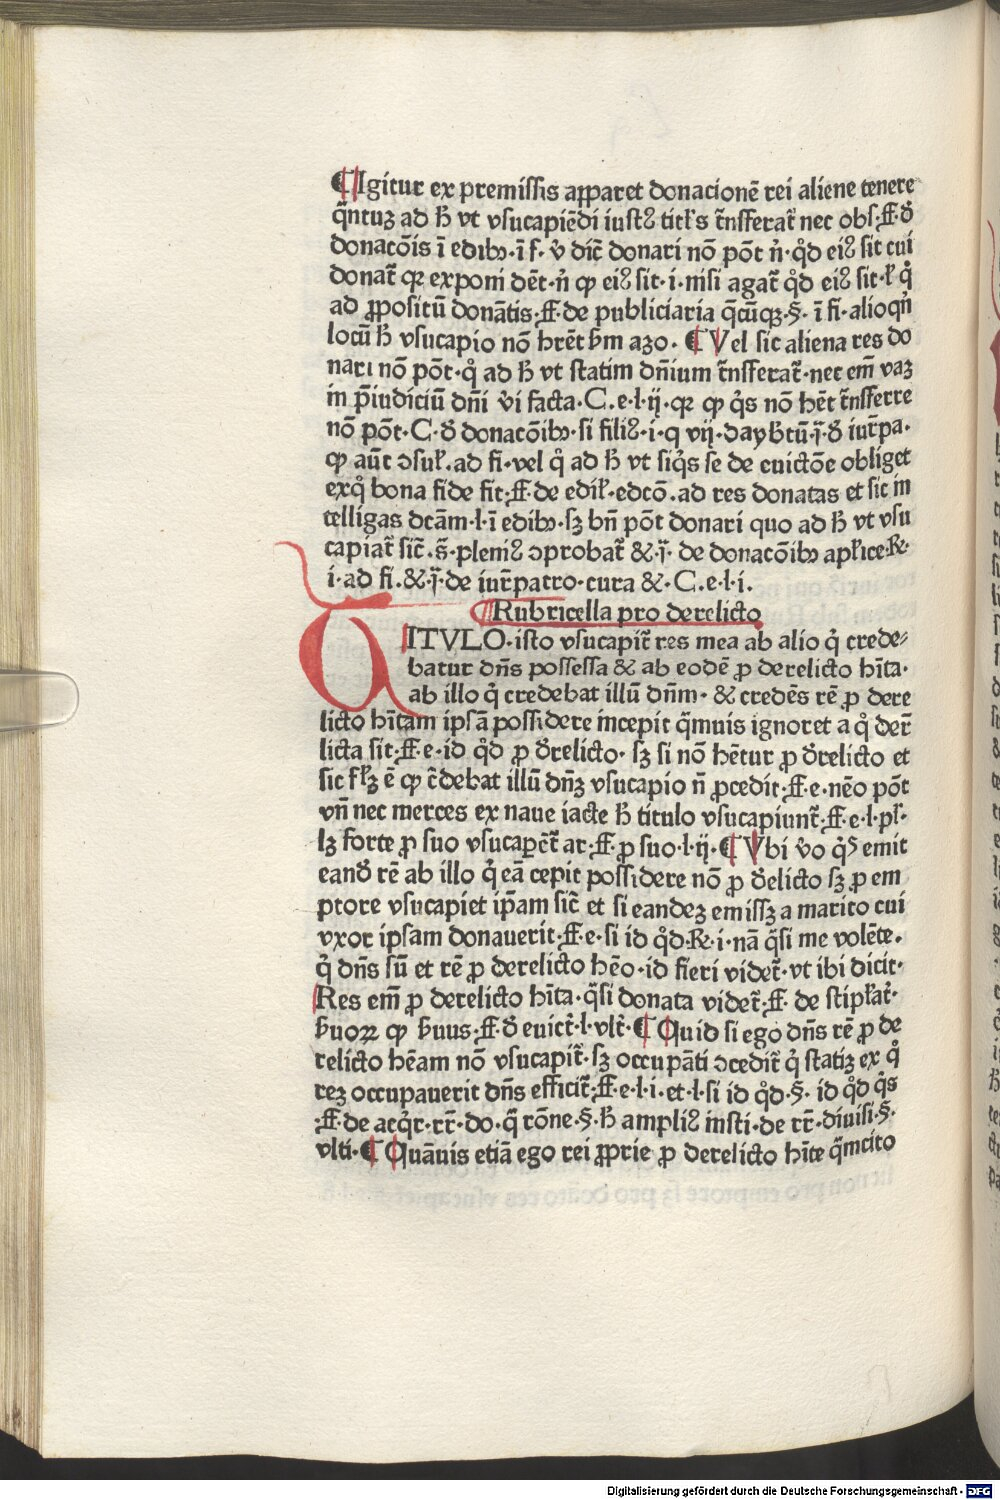 ¶ Igitur ex premissis apparet donacionē rei aliene tenere
q̄ntuʒ ad ħ vt vsucapiēdi iustꝰ titl’s t̄nsferat᷑ nec obs·ff·ð
donacōis ī edibꝫ·ī f· v̓ dic̄ donari nō pōt n̄·qd̓ eiꝰ sit cui
donat᷑ qꝛ exponi dēt·n̄ ꝙ eiꝰ sit·i·nisi agat᷑ qd̓ eiꝰ sit·ł q̓
ad ꝓpositū donātis·ff·de publiciaria q̄cūqꝫ·§· ī fi·alioqn̓
locū ħ vsucapio nō hr̄et b̄m azo· ¶ Vel sic aliena res do
nari nō pōt·q̊ ad ħ vt statim dn̄ium t̄nsferat᷑·nec em̄ vaʒ
in p̄iudiciū dn̄i v̓i facta·C·e·l·ij·qꝛ ꝙ q̓s nō hēt t̄nsferre
nō pōt·C·ð donacōibꝫ·si filiꝰ·i·q vij·
ꝙ aūt ɔsul’·ad fi·vel q̊ ad ħ vt siq̓s se de euictōe obliget
exq̊ bona fide fit·ff·de edil’·edcō·ad res donatas et sic in
telligas dcām·l·ī edibꝫ·sʒ bn̄ pōt donari quo ad ħ vt vsu
capiat᷑ sic̄·s̄·pleniꝰ ɔprobat᷑ &·j̄· de donacōibꝫ apl’ice·R·
i·ad fi·&·j̄·de iur̄patro·cura &·C·e·l·i·
Rubricella pro derelicto
TITVLO·isto vsucapit᷑ res mea ab alio q̓ crede⸗
batur dn̄s possessa & ab eodē ꝓ derelicto hīta·
ab illo q̓ credebat illū dn̄m· & credēs rē ꝓ dere
licto hītam ipsā possidere incepit q̄muis ignoret a q̊ der̄
licta sit·ff·e·id qd̓ ꝓ ðrelicto· sʒ si nō hētur ꝓ ðrelicto et
sic fl’ʒ ē ꝙ c̄debat illū dn̄ʒ vsucapio n̄ ꝓcedit·ff·e·nēo pōt
vn̄ nec merces ex naue iacte ħ titulo vsucapiunt᷑·ff·e·l·pl’·
lʒ forte ꝓ suo vsucaperēt᷑ ar·ff·ꝓ suo·l·ij·¶ Vbi v̓o q̓s emit
eanð rē ab illo q̓ eā cepit possidere nō ꝓ ðelicto sʒ ꝓ em
ptore vsucapiet ip̄am sic̄ et si eandeʒ emissʒ a marito cui
vxor ipsam donauerit·ff·e·si id qd̓·R·i·nā q̄si me volēte·
q̓ dn̄s sū et rē ꝓ derelicto hēo·id fieri videt᷑·vt ibi dicit·
Res em̄ ꝓ derelicto hīta·q̄si donata videt᷑·ff· de stipl’at᷑·
ƀuoꝝ ꝙ ƀuus·ff·ð euict᷑·l·vlt᷑·¶ Quid si ego dn̄s rē ꝓ de
relicto hēam nō vsucapit᷑·sʒ occupāti ɔcedit᷑ q̓ statiʒ ex q̊
reʒ occupauerit dn̄s efficit᷑·ff·e·l·i·et·l·si id qd̓·§· id qd̓ q̓s
·ff·de acq̓r·rr̄·do·q̄ rōne·§·ħ ampliꝰ insti·de rr̄·diuisi·§·
vlti·¶ Quāuis etiā ego rei ꝓprie ꝓ derelicto hīte q̄mcito
Digitalisierung gefördert durch die Deutsche Forschungsgemeinschaft · DFG